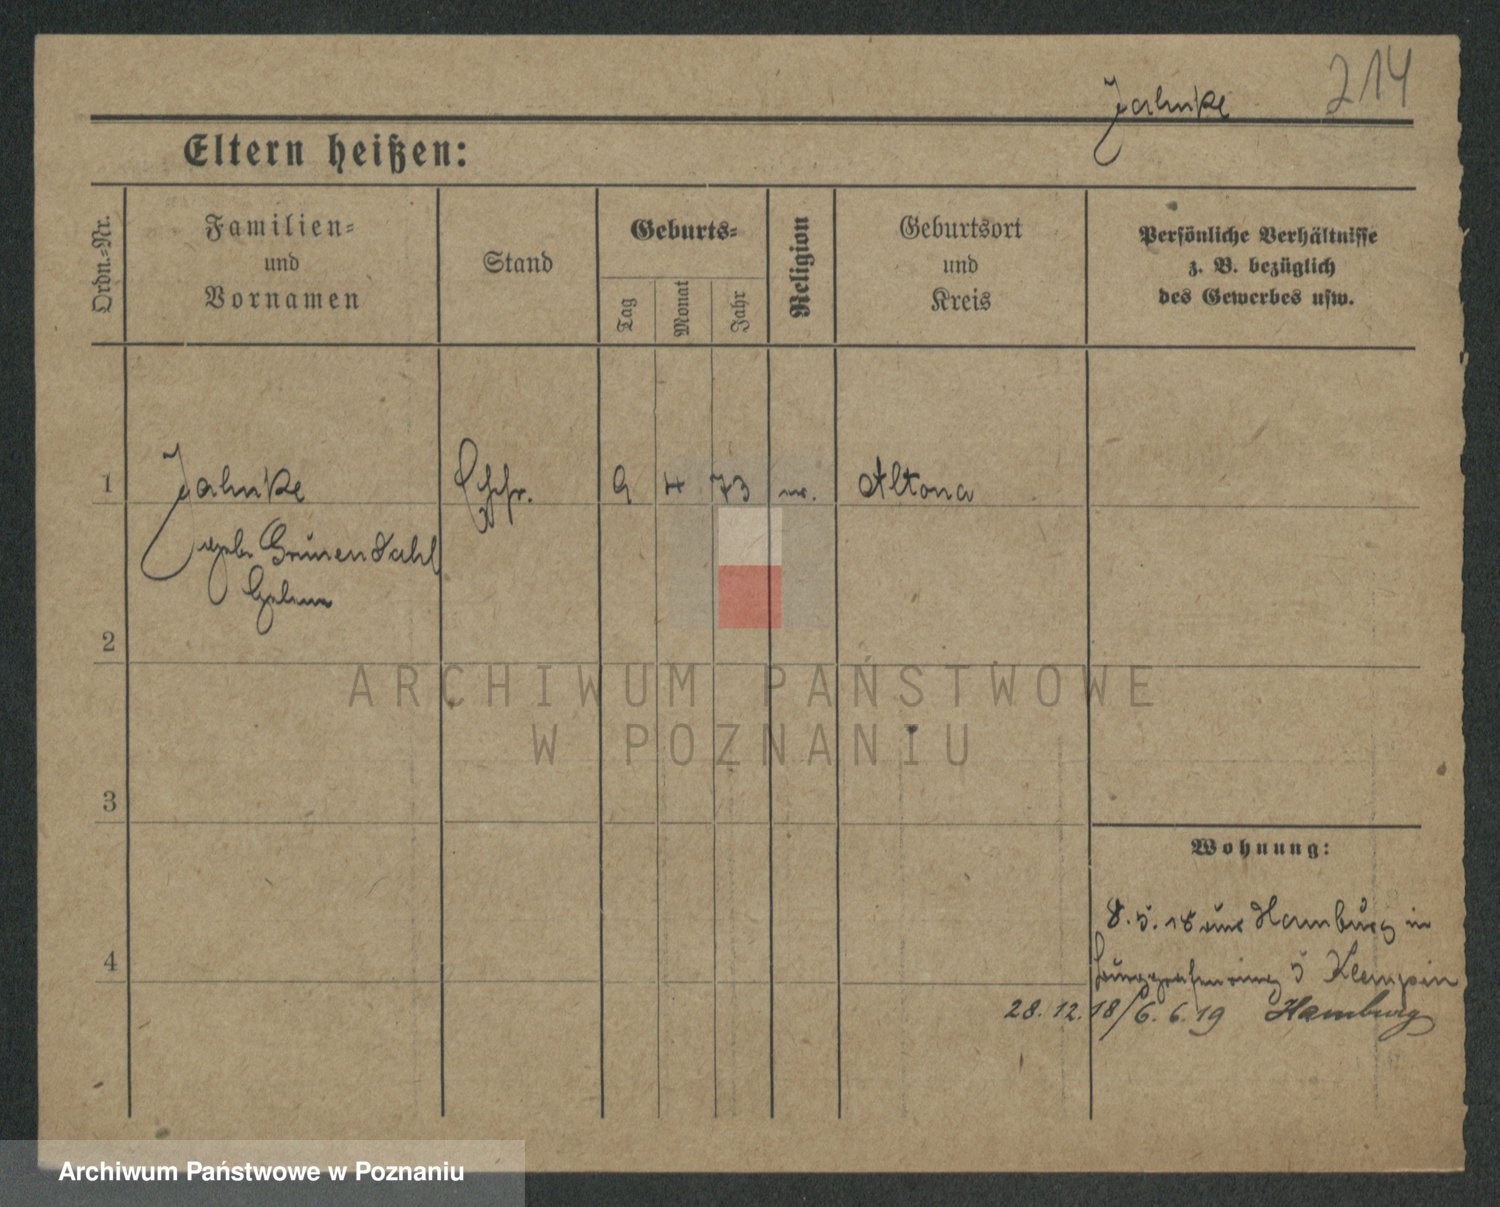 214
Jahnke
Eltern heißen:
Ordn.-Nr.
Familien-
und
Vornamen
Stand
Geburts-
Tag
Monat
Jahr
Religion
Geburtsort
und
Kreis
Persönliche Verhältnisse
z. B. bezüglich
des Gewerbes usw.
1
Jahnke
9 4 73
Altona
geb. Grünendahl
2
ARCHIWUM PAŃSTWOWE
W POZNANIU
3
Wohnung:
8. 5. 18 aus Hamburg in
4
5 Klempin
28. 12. 18/6. 6. 19 Hamburg
Archiwum Państwowe w Poznaniu